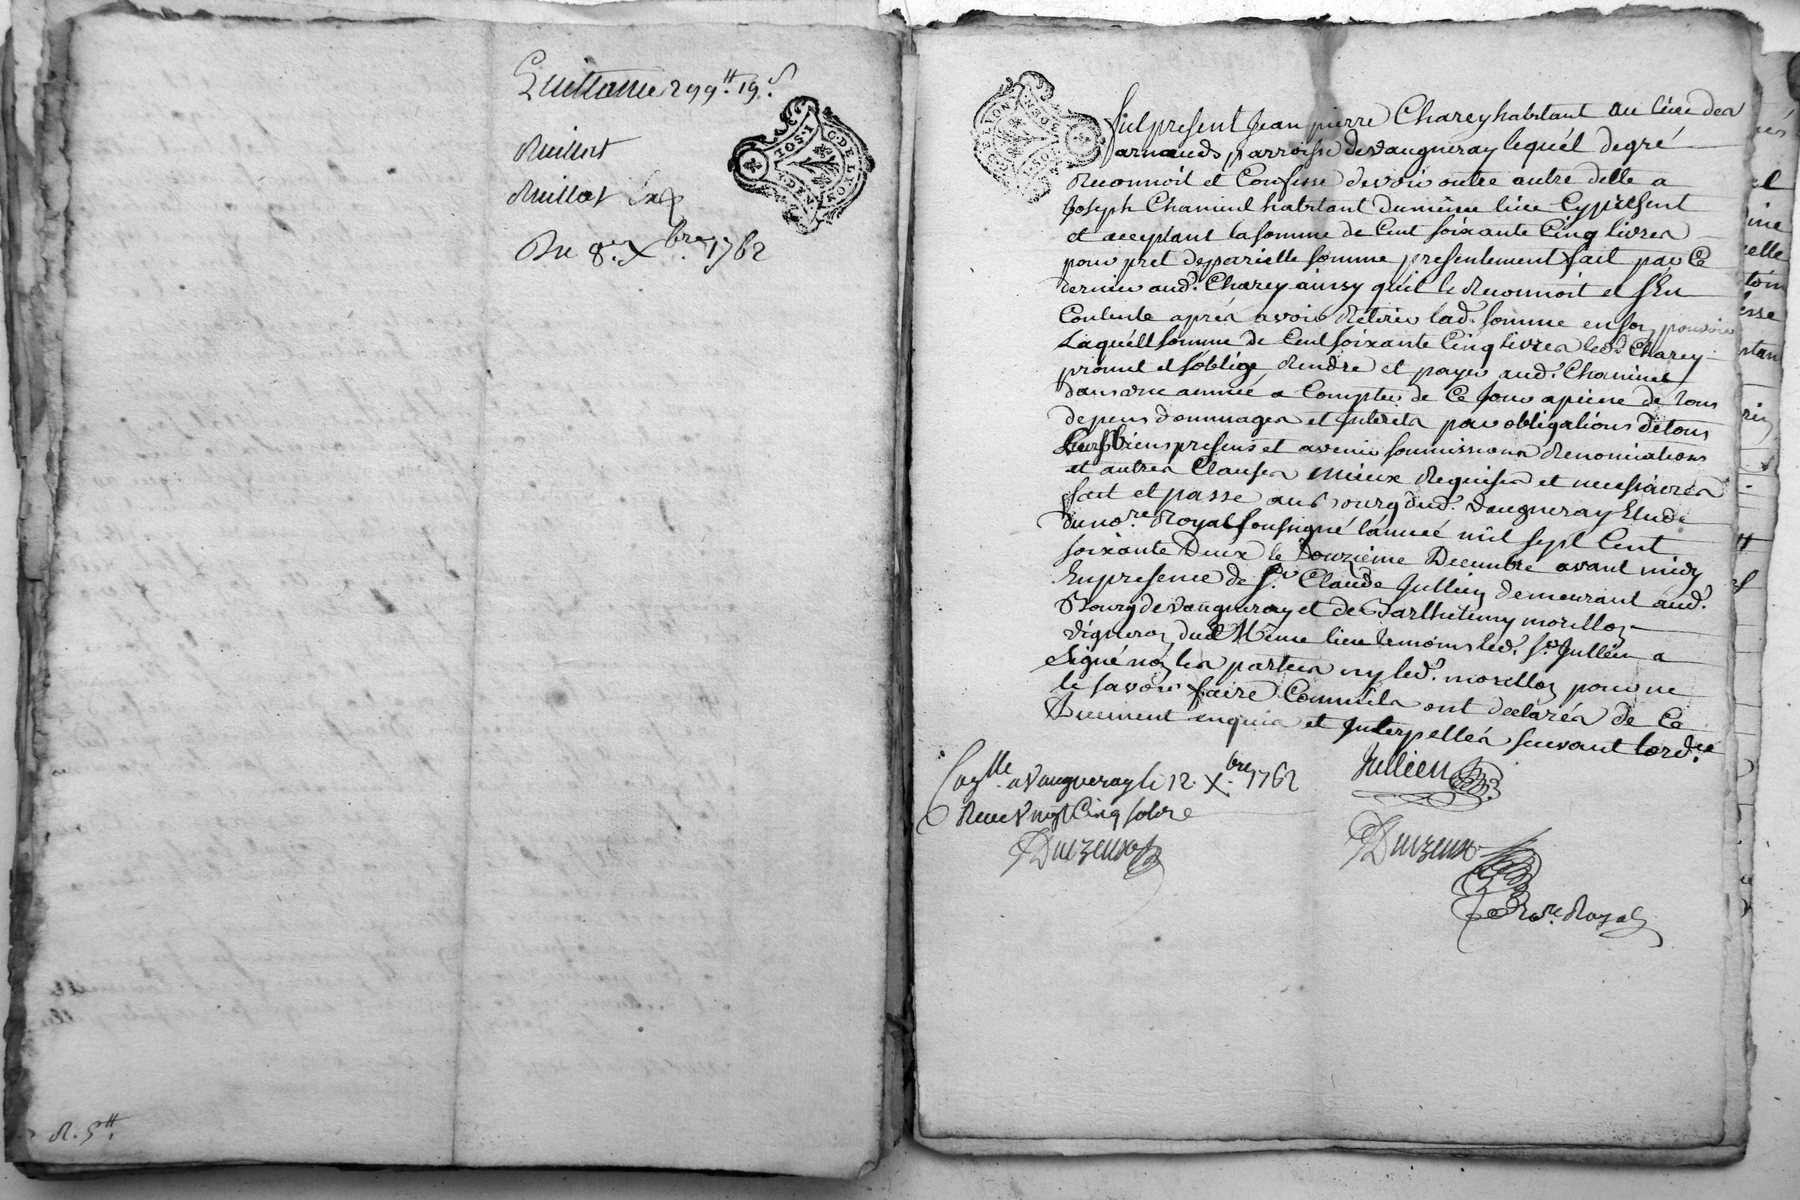 Quittance 299# 19s
Ruillat
Ruillat Exp
Du 8er Xbre 1762
R. 5#.
G. DE LYON
MOYEN
1. SOL
Fut present Jean pierre Charey habitant au lieu des
arnauds, parroisse de Vaugneray lequel de gré
Reconnoit et Confesse devoir outre autre dette a
Joseph Chaminel habitant du même lieu Cy present
et acceptant la somme de Cent soixante Cinq livres
pour pret de parielle somme presentement fait par Ce
dernier aud. Charey ainsy qu'il le Reconnoit et s'En
Contente aprés avoir Retiré lad. somme en son pouvoir
Laquélle somme de Cent soixante Cinq livres led. Charey
promet et s'oblige, Rendre et payer aud. Chaminel
dans une année a Compter de Ce jour a peine de tous
depens dommages et interets par obligations de tous
Leurs biens presens et avenir soumissions Renonciations
et autres Clauses mieux Requises et necessaires
fait et passe au bourg dud. Vaugneray Etude
du nore. Royal soussigné l'année mil sept Cent
soixante Deux le Douzieme Decembre avant midy
En presence de Sr. Claude Jullien demeurant aud.
Bourg de Vaugneray et de Barthelemy morillon
Vigneron dud Même lieu temoins led. Sr. Jullien a
Signé nón les parties ny led. morillon pour ne
le savoir faire Comm'ils ont declarés de Ce
Duement enquis et Interpellés suivant l'ordce
Conlle. a Vaugneray le 12. Xbre 1762
Reçu Vingt Cinq sols
Jullien
Nore. Royal